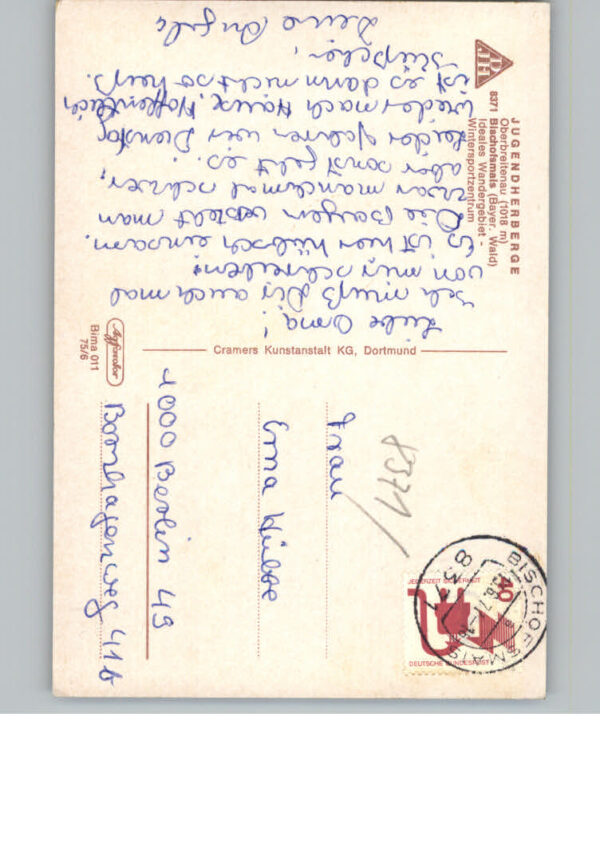 JUGENDHERBERGE
Oberbreitenau (1018 m)
8371 Bischofsmais (Bayer. Wald)
Ideales Wandergebiet -
Wintersportzentrum
DJH
Liebe Oma!
Ich muß Dir auch mal
von mir schreiben!
Es ist hier hübsch einsam.
Die Bayern versteht man
zwar manchmal schwer,
aber sonst geht es.
Leider fahren wir Dienstag
wieder nach Hause. Hoffentlich
ist es dann nicht so heiß.
Tschüßchen,
Deine
Cramers Kunstanstalt KG, Dortmund
Bima 011
75/6
8371
Frau
Erna
1000 Berlin 49
41b
40
JEDERZEIT SICHERHEIT
DEUTSCHE BUNDESPOST
BISCHOFSMAIS
8371